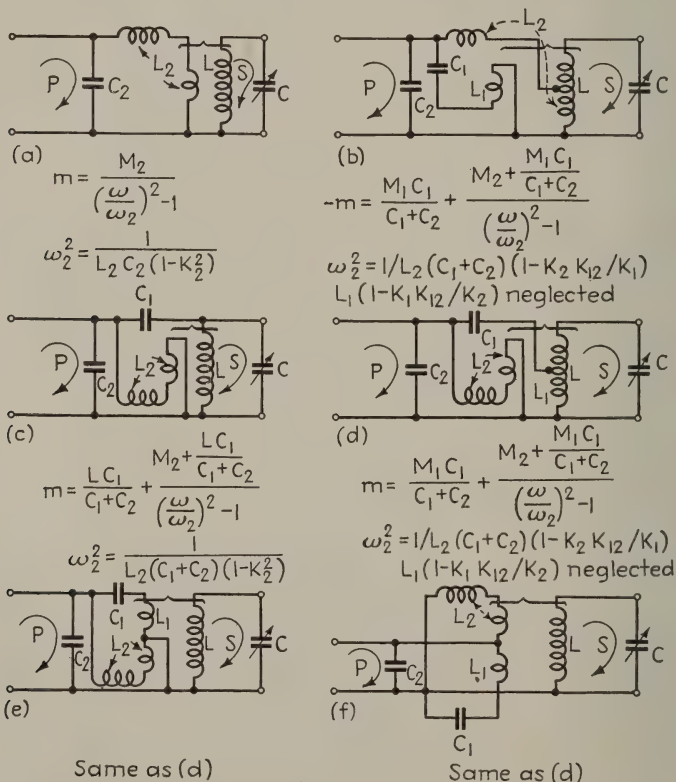 P C₂ L₂ L S C
(a)
m = M₂ / ((ω/ω₂)² - 1)
ω₂² = 1 / (L₂ C₂ (1-K₂²))
L₂
P C₂ C₁ L₁ L S C
(b)
-m = M₁C₁ / (C₁+C₂) + (M₂ + M₁C₁ / (C₁+C₂)) / ((ω/ω₂)² - 1)
ω₂² = 1/L₂(C₁+C₂)(1-K₂ K₁₂/K₁)
L₁(1-K₁K₁₂/K₂) neglected
C₁
P C₂ L₂ L S C
(c)
m = LC₁ / (C₁+C₂) + (M₂ + LC₁ / (C₁+C₂)) / ((ω/ω₂)² - 1)
ω₂² = 1 / (L₂(C₁+C₂)(1-K₂²))
C₁
P C₂ L₂ L₁ L S C
(d)
m = M₁C₁ / (C₁+C₂) + (M₂ + M₁C₁ / (C₁+C₂)) / ((ω/ω₂)² - 1)
ω₂² = 1/L₂(C₁+C₂)(1-K₂K₁₂/K₁)
L₁(1-K₁K₁₂/K₂) neglected
P C₂ C₁ L₁ L₂ L S C
(e)
Same as (d)
L₂
P C₂ L₁ L S C
(f)
C₁
Same as (d)